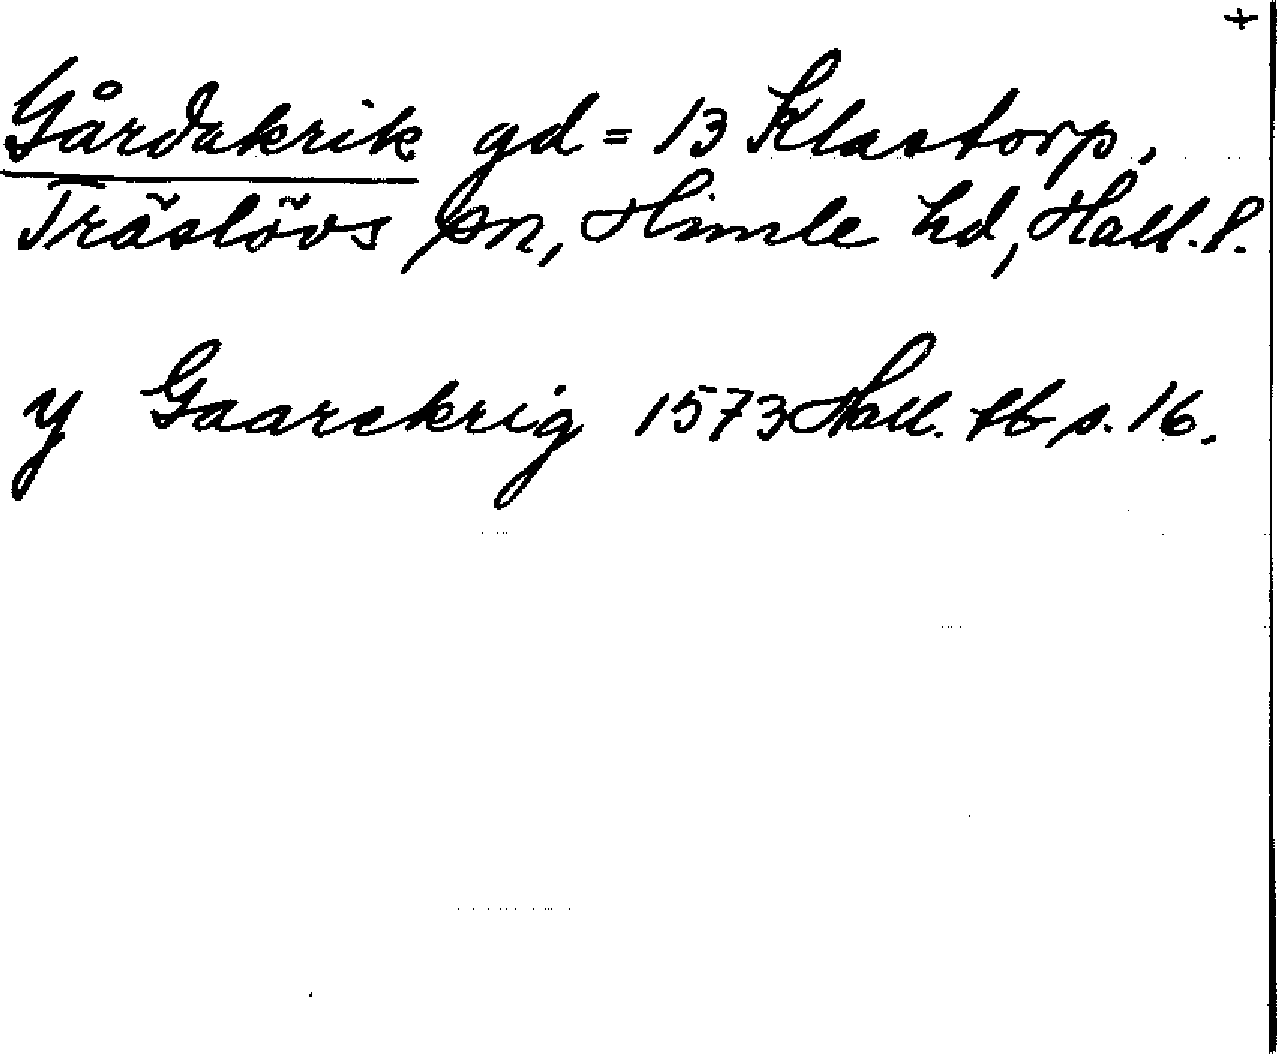 +
Gårdakrik gd = 13 Klastorp,
Träslövs sn, Himle hd, Hall. l.
y Gaarekrig 1573 Hall. tb s. 16.